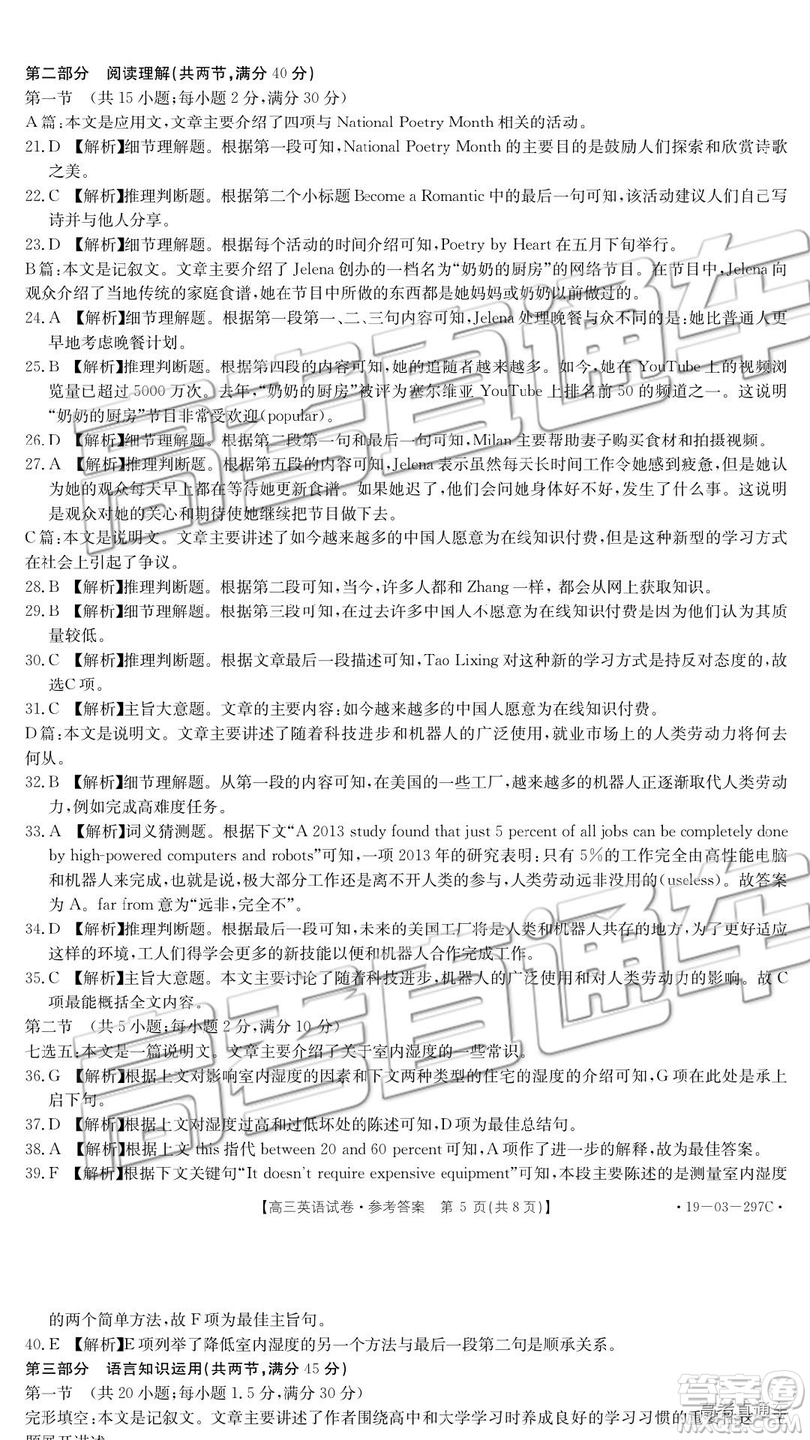 第二部分 阅读理解(共两节,满分 40 分)
第一节 (共 15 小题;每小题 2 分,满分 30 分)
A 篇:本文是应用文,文章主要介绍了四项与 National Poetry Month 相关的活动。
21. D 【解析】细节理解题。根据第一段可知,National Poetry Month 的主要目的是鼓励人们探索和欣赏诗歌
之美。
22. C 【解析】推理判断题。根据第二个小标题 Become a Romantic 中的最后一句可知,该活动建议人们自己写
诗并与他人分享。
23. D 【解析】细节理解题。根据每个活动的时间介绍可知,Poetry by Heart 在五月下旬举行。
B 篇:本文是记叙文。文章主要介绍了 Jelena 创办的一档名为“奶奶的厨房”的网络节目。在节目中,Jelena 向
观众介绍了当地传统的家庭食谱,节目中所做的东西都是她妈妈或奶奶以前做过的。
24. A 【解析】细节理解题。根据第一段第一、二、三句内容可知,Jelena 处理晚餐与众不同的是:她比普通人更
早地考虑晚餐计划。
25. B 【解析】推理判断题。根据第四段的内容可知,她的追随者越来越多。如今,她在 YouTube 上的视频浏
览量已超过 5000 万次。去年,“奶奶的厨房”被评为塞尔维亚 YouTube 上排名前 50 的频道之一。这说明
“奶奶的厨房”节目非常受欢迎(popular)。
26. D 【解析】细节理解题。根据第二段第一句和最后一句可知,Milan 主要帮助妻子购买食材和拍摄视频。
27. A 【解析】推理判断题。根据第五段的内容可知,Jelena 表示虽然每天长时间工作令她感到疲惫,但是她认
为她的观众每天早上都在等待她更新食谱。如果她迟了,他们会问她身体好不好,发生了什么事。这说明
是观众对她的关心和期待使她继续把节目做下去。
C 篇:本文是说明文。文章主要讲述了如今越来越多的中国人愿意为在线知识付费,但是这种新型的学习方式
在社会上引起了争议。
28. B 【解析】推理判断题。根据第二段可知,当今,许多人和 Zhang 一样,都会从网上获取知识。
29. B 【解析】细节理解题。根据第三段可知,在过去许多中国人不愿意为在线知识付费,是因为他们认为其质
量较低。
30. C 【解析】推理判断题。根据文章最后一段描述可知,Tao Lixing 对这种新的学习方式是持反对态度的,故
选C 项。
31. C 【解析】主旨大意题。文章的主要内容:如今越来越多的中国人愿意为在线知识付费。
D 篇:本文是说明文。文章主要讲述了随着科技进步和机器人的广泛使用,就业市场上的人类劳动力将何去
何从。
32. B 【解析】细节理解题。从第一段的内容可知,在美国的一些工厂,越来越多的机器人正逐渐取代人类劳动
力,例如完成高难度任务。
33. A 【解析】词义猜测题。根据下文“A 2013 study found that just 5 percent of all jobs can be completely done
by high-powered computers and robots”可知,一项 2013 年的研究表明:只有 5%的工作完全由高性能电脑
和机器人来完成,也就是说,极大部分工作还是离不开人类的参与,人类劳动远非没用的(useless)。故答案
为 A。far from 意为“远非,完全不”。
34. D 【解析】推理判断题。根据最后一段可知,未来的美国工厂将是人类和机器人共存的地方,为了更好地适应
这样的环境,工人们得学会更多的新技能以便和机器人合作完成工作。
35. C 【解析】主旨大意题。本文主要讨论了随着科技进步,机器人的广泛使用和对人类劳动力的影响。故 C
项最能概括全文内容。
第二节 (共 5 小题;每小题 2 分,满分 10 分)
七选五:本文是一篇说明文。文章主要介绍了关于室内湿度的一些常识。
36. G 【解析】根据上文对影响室内湿度的因素和下文两种类型的住宅的湿度的介绍可知,G 项在此处是承上
启下句。
37. D 【解析】根据上文对湿度过高和过低坏处的陈述可知,D项为最佳总结句。
38. A 【解析】根据上文 this 指代 between 20 and 60 percent可知,A项作了进一步的解释,故为最佳答案。
39. F 【解析】根据下文关键句“It doesn't require expensive equipment”可知,本段主要陈述的是测量室内湿度
【高三英语试卷·参考答案 第 5 页(共 8 页)】 ·19-03-297C·
的两个简单方法,故 F 项为最佳主旨句。
40. E 【解析】E 项列举了降低室内湿度的另一个方法与最后一段第二句是顺承关系。
第三部分 语言知识运用(共两节,满分 45 分)
第一节 (共 20 小题;每小题 1.5 分,满分 30 分)
完形填空:本文是记叙文。文章主要讲述了作者围绕高中和大学学习时养成良好的学习习惯的重要性这一主
题展开讲述。
高考直通车
高考直通车
答案圈
高考直通车